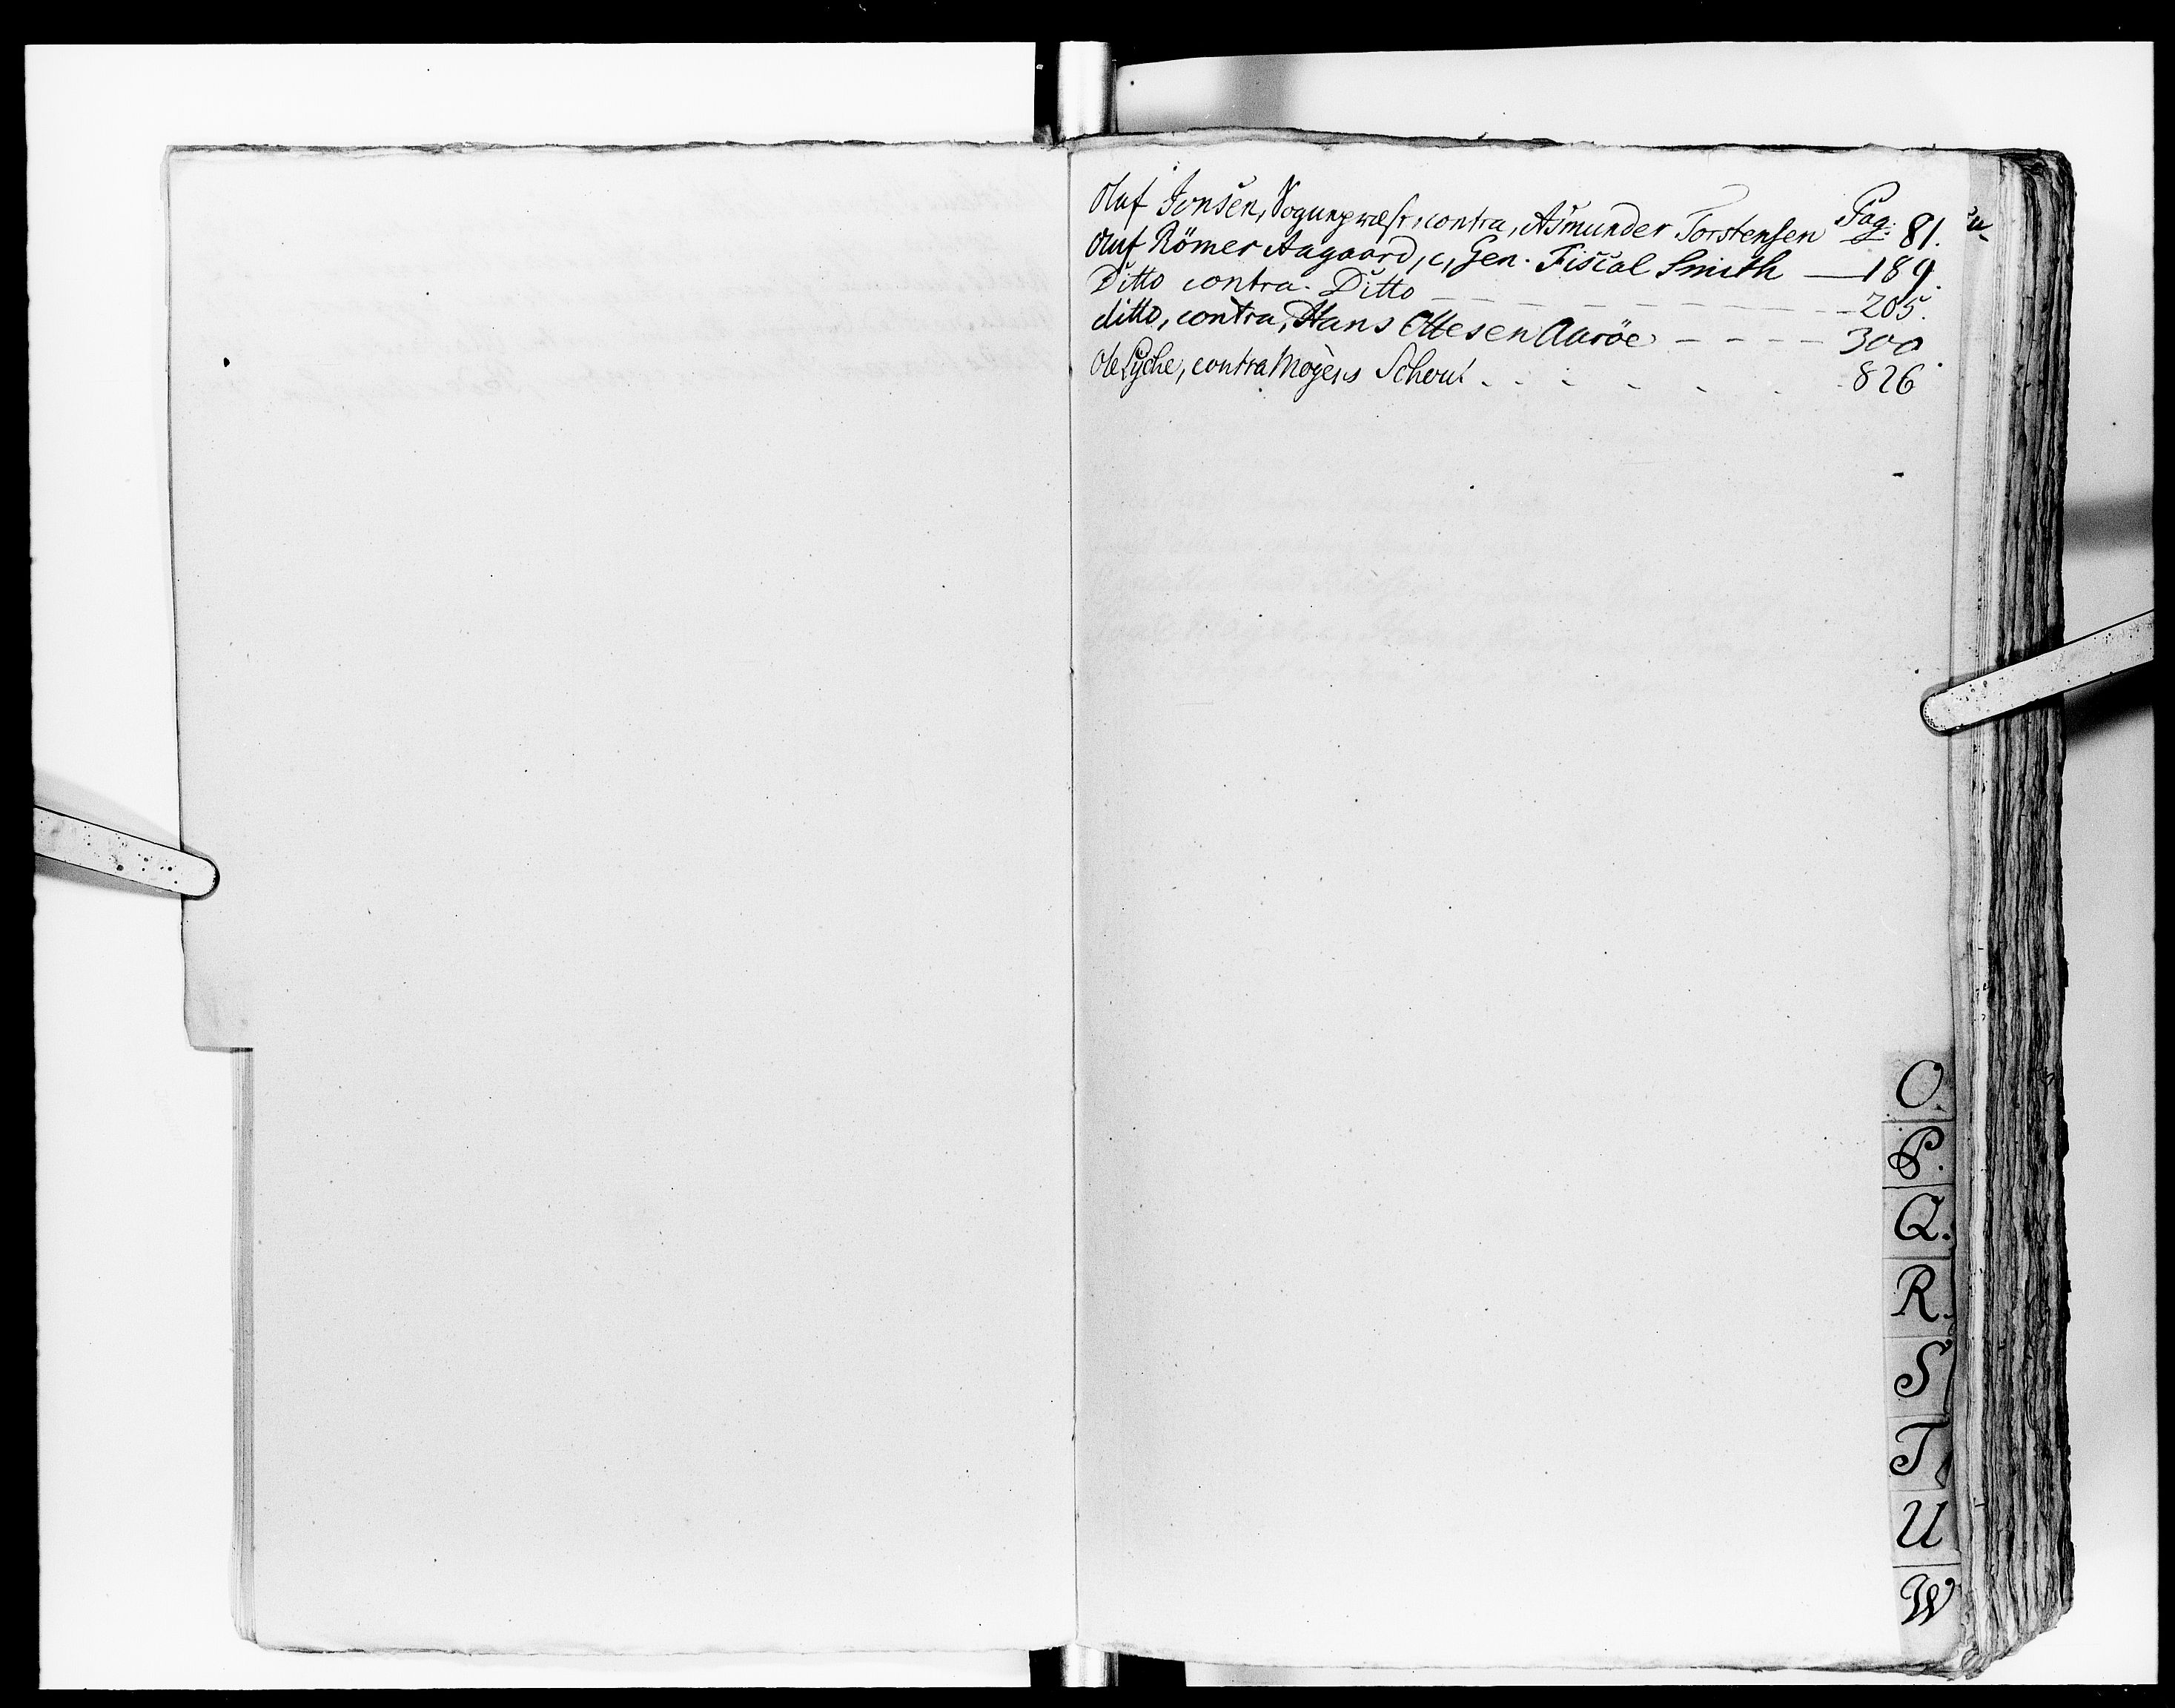 Oluf Jonsen, Sognepræst, contra, Asmunder Torstensen Pag: 81.
Oluf Römer Aagaard, c, Gen. Fiscal Smith — 189.
Ditto contra Ditto - - - - - - - 205.
ditto, contra, Hans Ottesen Aaröe - - - - 300.
Ole Lyche, contra Mogens Schout - - - - - - 826
O.
P.
Q.
R.
S
T.
U
W